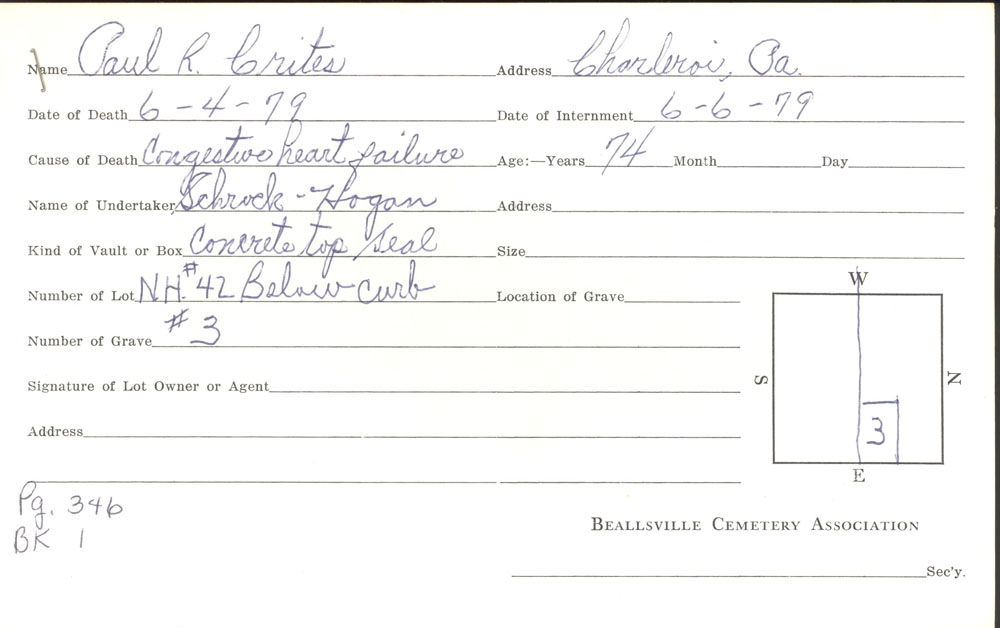 Name Paul R. Crites Address Charleroi, Pa.
Date of Death 6-4-79 Date of Internment 6-6-79
Cause of Death Congestive heart failure Age:—Years 74 Month Day
Name of Undertaker Schrock-Hogan Address
Kind of Vault or Box Concrete top seal Size
Number of Lot NH. #42 Below curb Location of Grave
Number of Grave #3
Signature of Lot Owner or Agent
Address
W
S
N
3
E
Pg. 346
BK 1
BEALLSVILLE CEMETERY ASSOCIATION
Sec'y.